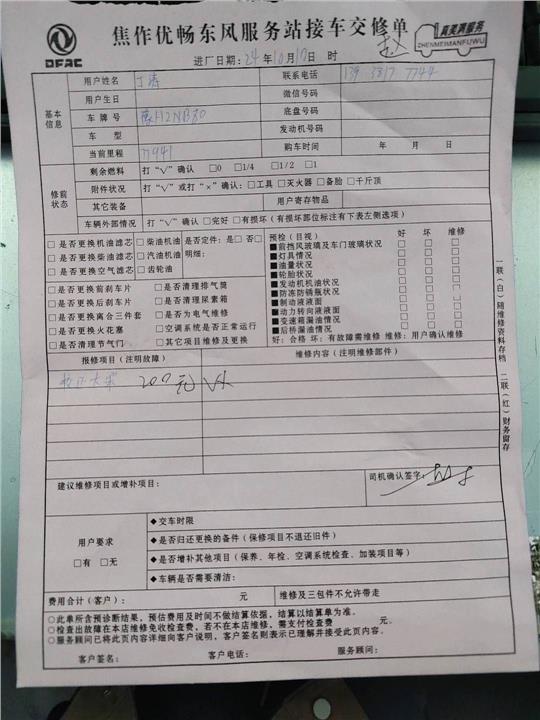 DFAC
焦作优畅东风服务站接车交修单
真美满服务
ZHENMEIMANFUWU
进厂日期：24年10月10日 时
基本信息
用户姓名
联系电话
用户生日
微信号码
车牌号 豫H2NB80
底盘号码
车型
发动机号码
当前里程 77941
购车时间 年 月 日
修前状态
剩余燃料 打“√”确认 □0 □1/4 □1/2 □1
附件状况 打“√”或打“×”确认：□工具□灭火器□备胎□千斤顶
其它装备 用户寄存物品
车辆外部情况 打“√”确认□完好□有损坏（有损坏部位标注有下表左侧选项）
□是否更换机油滤芯□柴油机油 是否定件：□是□否
□是否更换柴油滤芯□汽油机油 明细：
□是否更换空气滤芯□齿轮油
□是否更换前刹车片 □是否清理排气筒
□是否更换后刹车片 □是否清理尿素箱
□是否更换离合三件套 □是否为电气维修
□是否更换火花塞 □空调系统是否正常运行
□是否清理节气门 □其它项目维修及更换
预检（目视） 好 坏 维修
■前挡风玻璃及车门玻璃状况 □ □ □
■灯具情况 □ □ □
■油量状况 □ □ □
■轮胎状况 □ □ □
■发动机机油状况 □ □ □
■防冻防锈瓶状况 □ □ □
■制动液液面 □ □ □
■动力转向液液面 □ □ □
■变速箱漏油情况 □ □ □
■后桥漏油情况 □ □ □
好：合格 坏：有故障需维修 维修：用户确认维修
报修项目（注明故障） 维修内容（注明维修部件）
200元
建议维修项目或增补项目：
司机确认签字：
用户要求
□有 □无
◆交车时限
◆是否归还更换的备件（保修项目不退还旧件）
◆是否增补其他项目（保养、年检、空调系统检查、加装项目等）
◆车辆是否需要清洁：
费用合计（客户）： 元 维修及三包件不允许带走
○此单所含预诊断结果，预估费用及时间不做结算依据，结算以结算单为准。
○检查出故障在本店维修免收检查费，若不在本店维修，需支付检查费 元。
○服务顾问已将此页内容详细向客户说明，客户签名则表示已理解并接受此页内容。
客户签名： 客户电话： 服务顾问：
一联（白）随维修资料存档
二联（红）财务留存